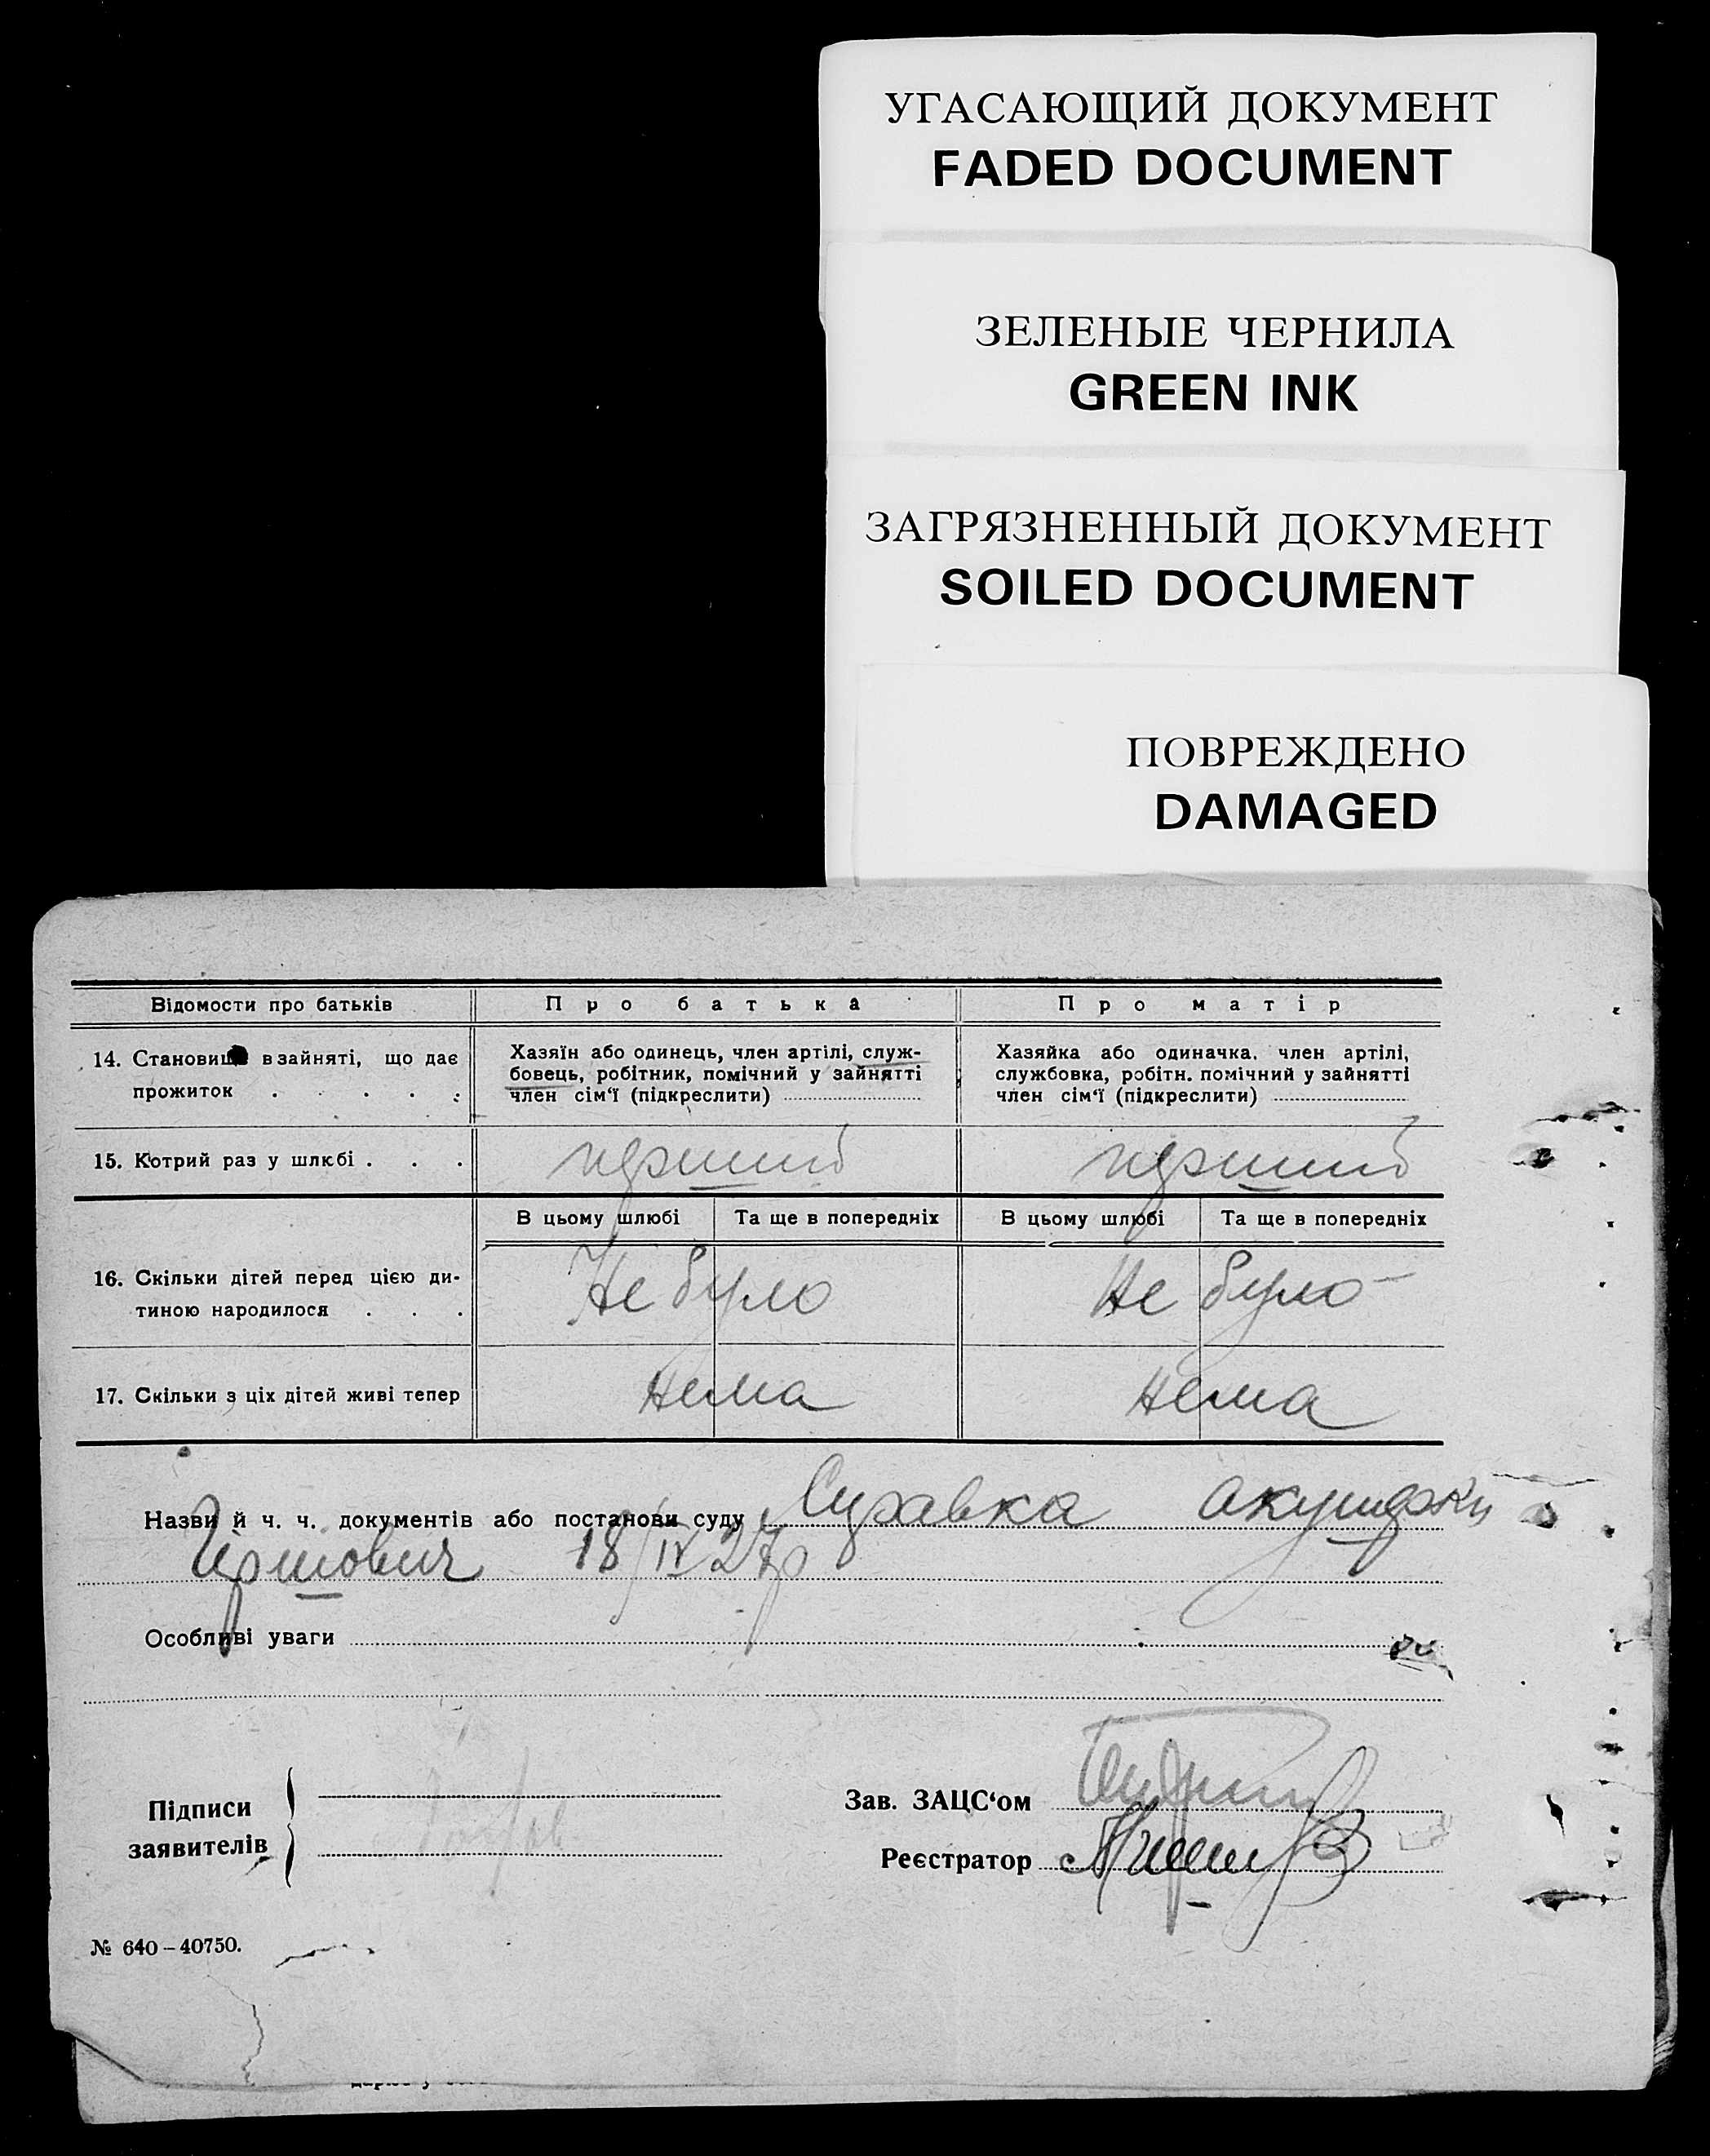 УГАСАЮЩИЙ ДОКУМЕНТ
FADED DOCUMENT
ЗЕЛЕНЫЕ ЧЕРНИЛА
GREEN INK
ЗАГРЯЗНЕННЫЙ ДОКУМЕНТ
SOILED DOCUMENT
ПОВРЕЖДЕНО
DAMAGED
Відомости про батьків
Про батька
Про матір
14. Становище в зайняті, що дає
прожиток . . . . .
Хазяїн або одинець, член артілі, служ-
бовець, робітник, помічний у зайнятті
член сім‘ї (підкреслити)
Хазяйка або одиначка. член артілі,
службовка, робітн. помічний у зайнятті
член сім‘ї (підкреслити)
15. Котрий раз у шлюбі . . .
перший
перший
В цьому шлюбі
Та ще в попередніх
В цьому шлюбі
Та ще в попередніх
16. Скільки дітей перед цією ди-
тиною народилося . . .
Не було
Не було
17. Скільки з ціх дітей живі тепер
нема
нема
Назви й ч. ч. документів або постанови суду Справка акушерки
18/IV 27р
Особливі уваги
Підписи
заявителів
Зав. ЗАЦС‘ом
Реєстратор
№ 640–40750.